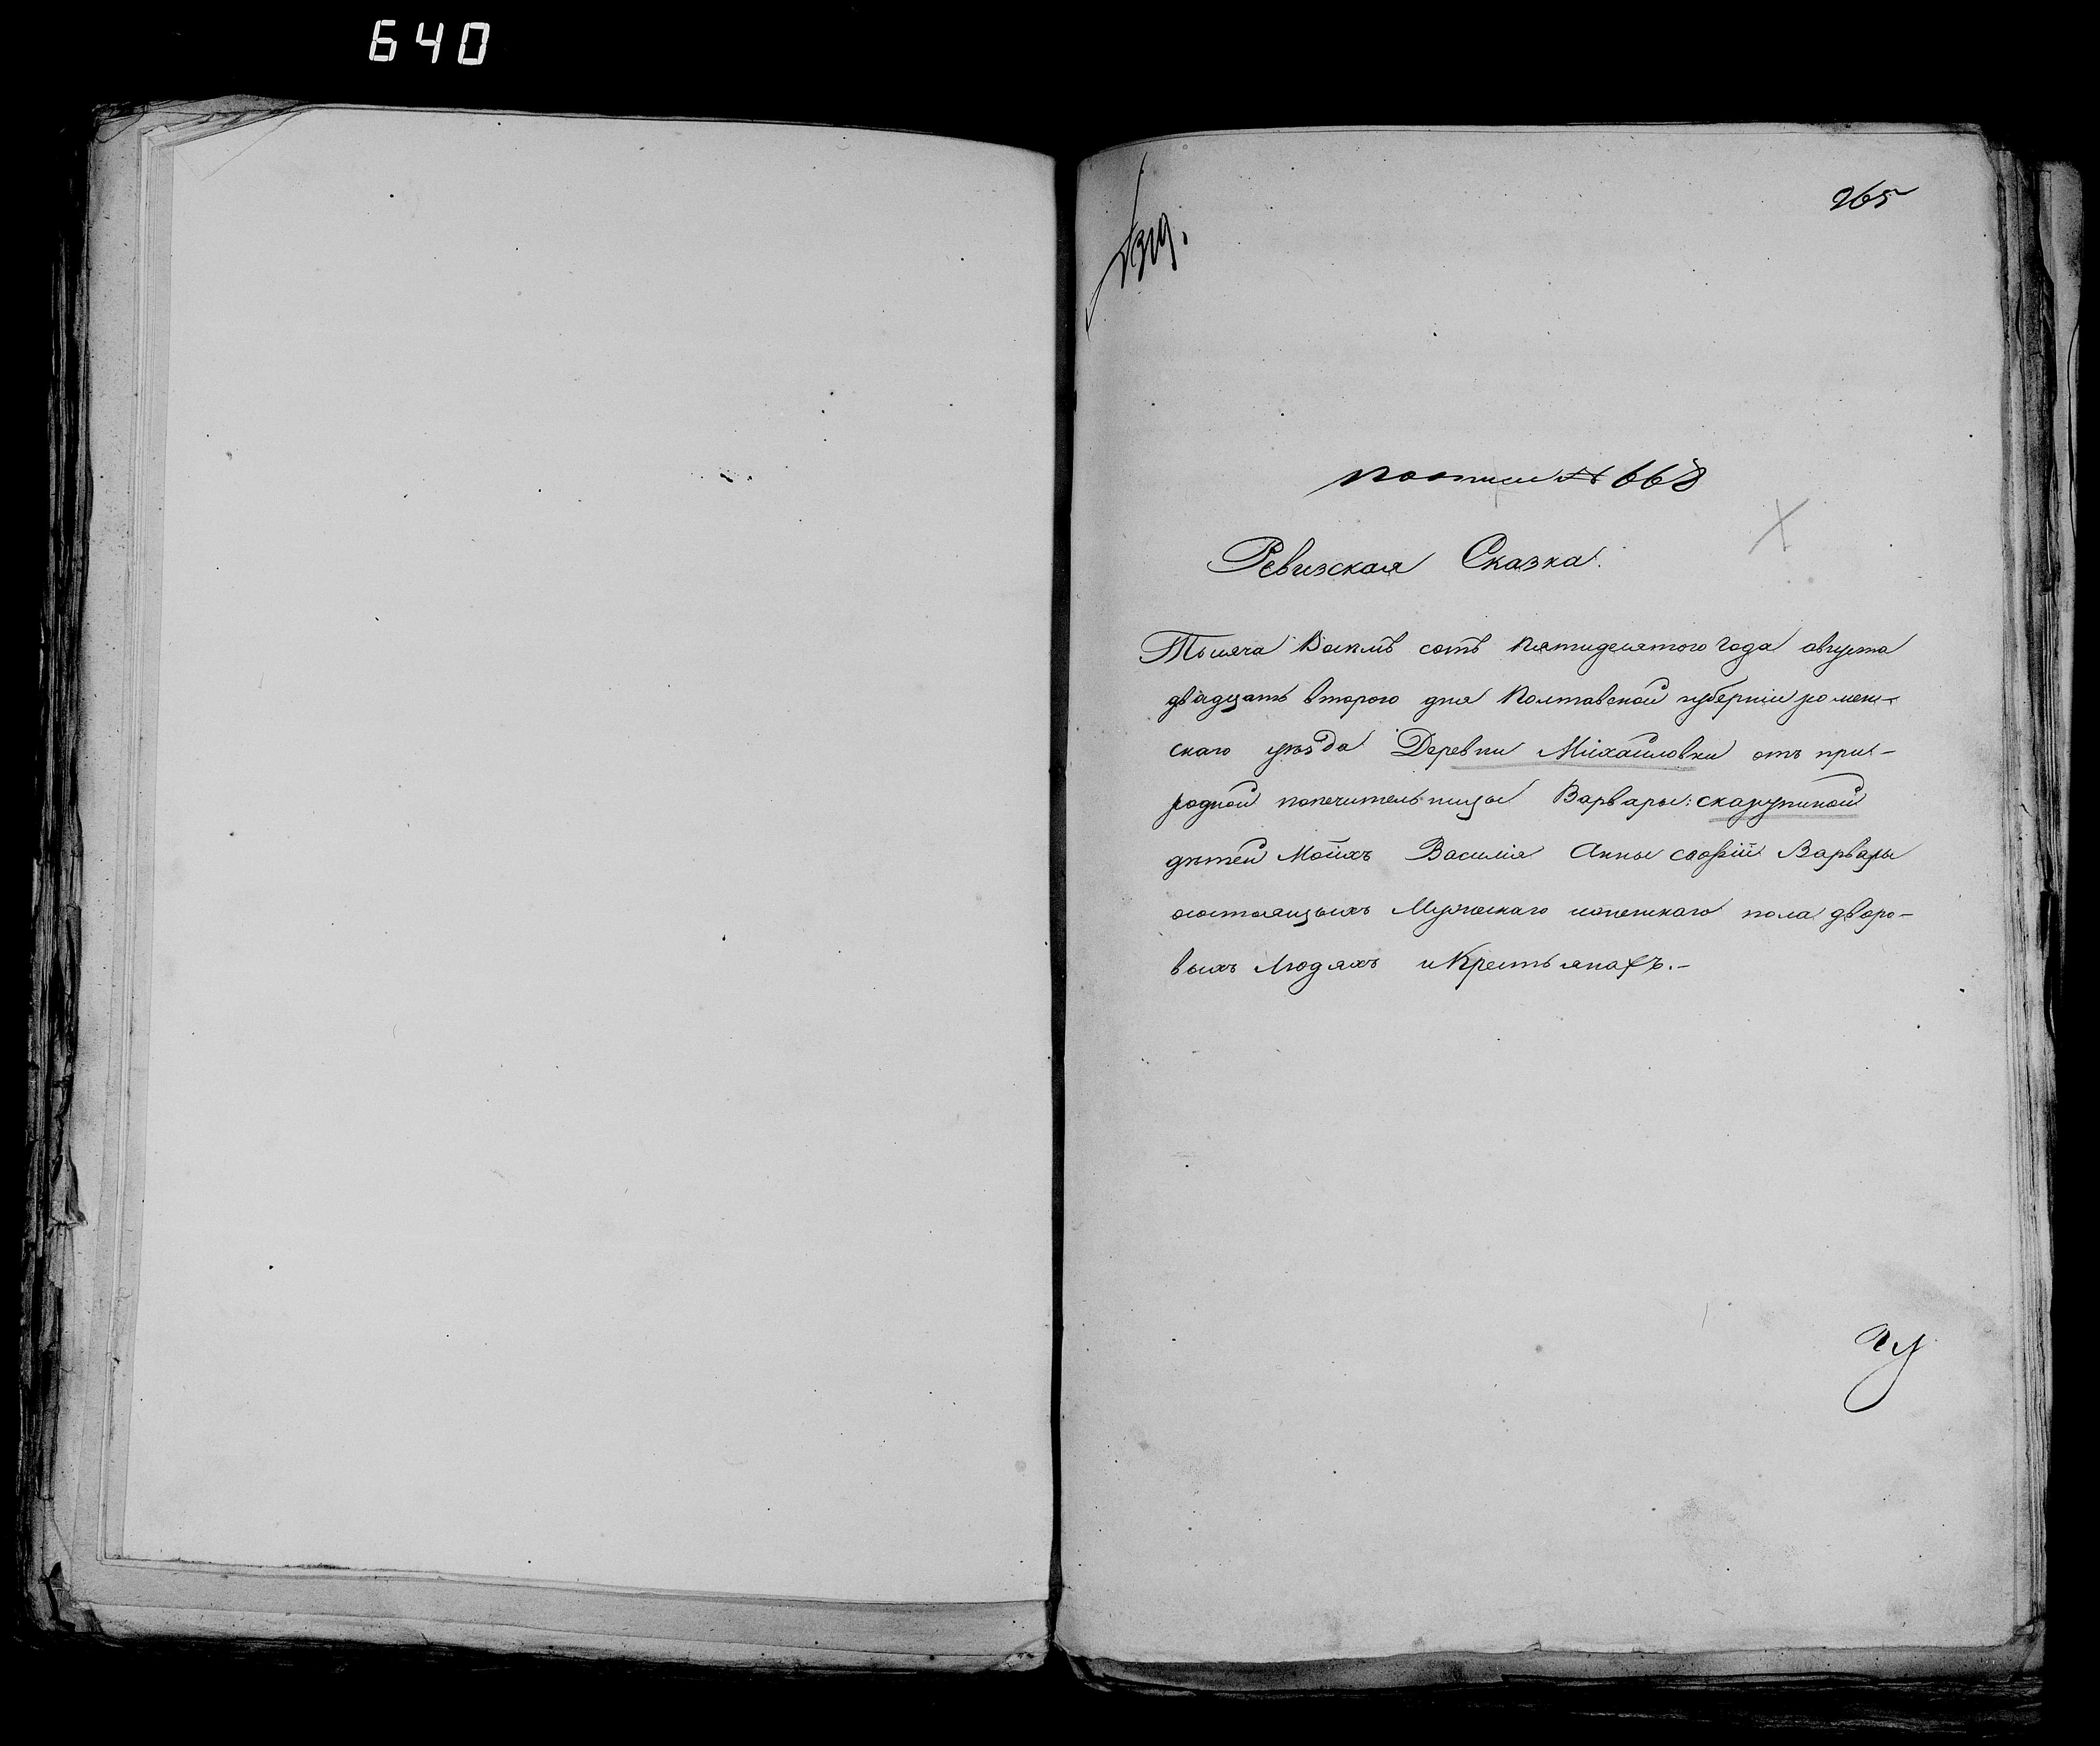 640
265
По описи № 668
Ревизская Сказка.
Тысяча Восмъ сотъ пятидесятого года августа
двадцать второго дня Полтавской губерніи ромен-
скаго уезда Деревни Михайловки отъ при-
родной попечительницы Варвары: скаржинской
детей Моихъ Василія Анны софіи Варвары
состоящихъ Мужескаго и женскаго пола дворо-
выхъ Людяхъ и Крестьянахъ.-